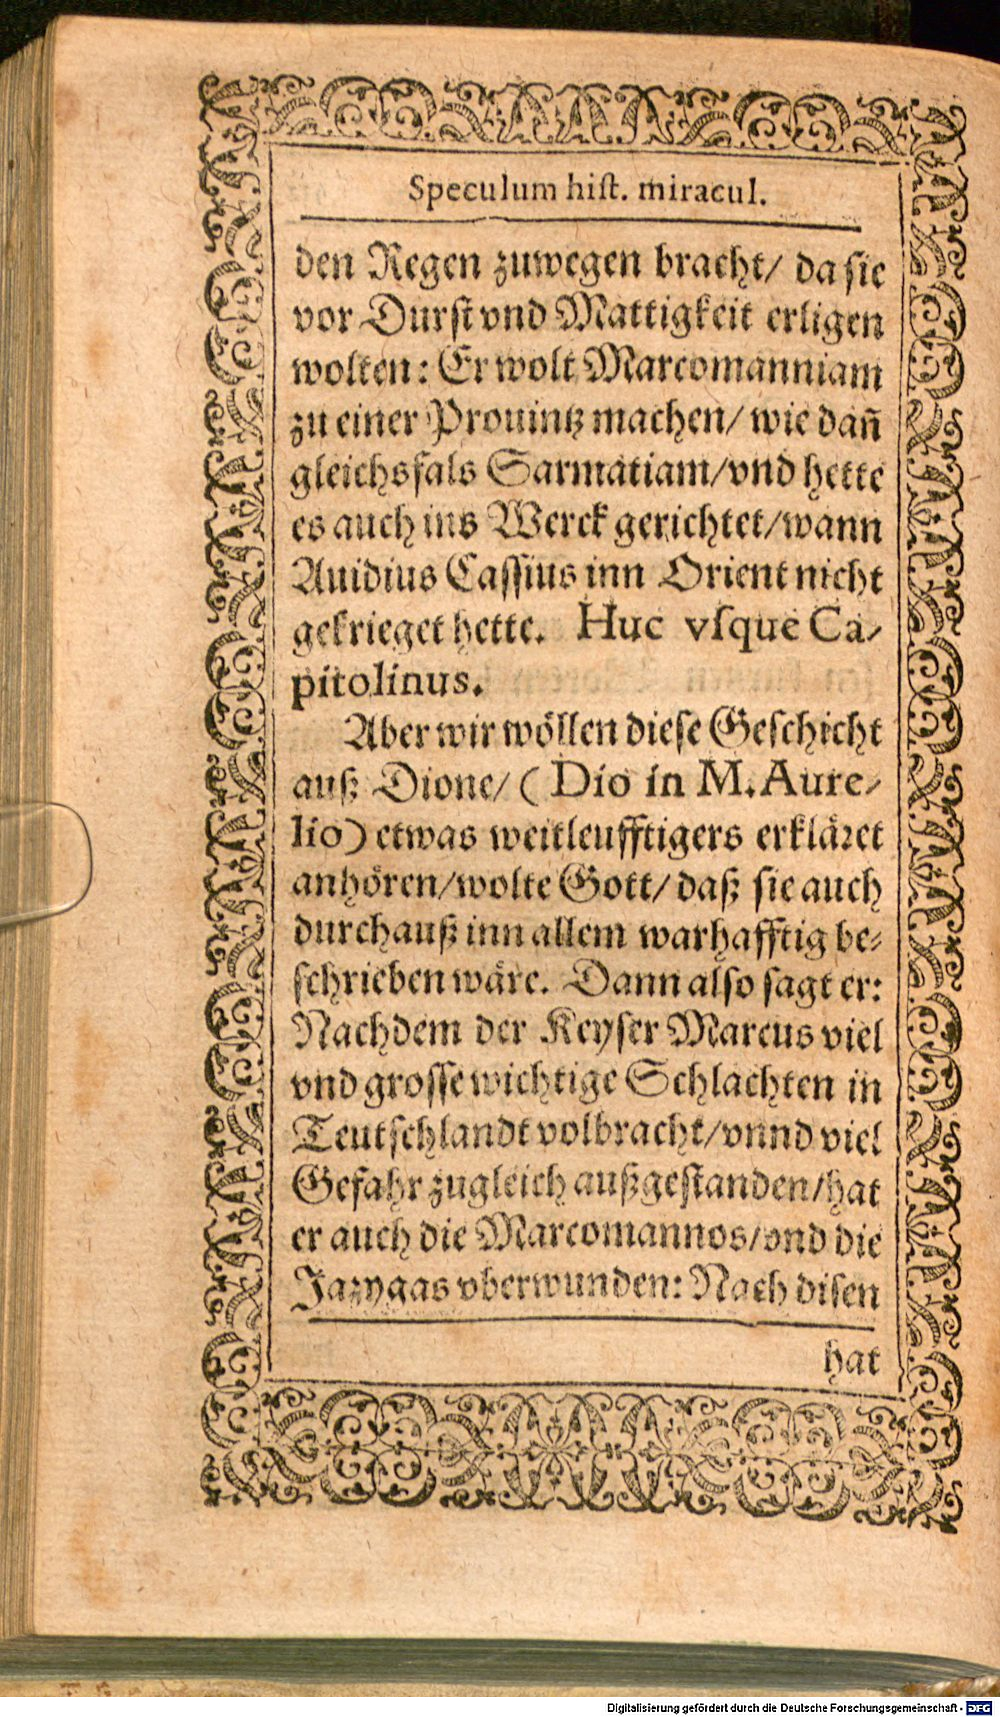 Speculum hiſt. miracul.
den Regen zuwegen bracht/ da ſie
vor Durſt vnd Mattigkeit erligen
wolten: Er wolt Marcomanniam
zu einer Prouintz machen/ wie dañ
gleichsfals Sarmatiam/vnd hette
es auch ins Werck gerichtet/wann
Auidius Caſſius inn Orient nicht
gekrieget hette. Huc vſque Ca-
pitolinus.
Aber wir wöllen dieſe Geſchicht
auß Dione/ ( Dio in M. Aure-
lio) etwas weitleufftigers erkläret
anhören/wolte Gott/ daß ſie auch
durchauß inn allem warhafftig be-
ſchrieben wäre. Dann alſo ſagt er:
Nachdem der Keyſer Marcus viel
vnd groſſe wichtige Schlachten in
Teutſchlandt volbracht/vnnd viel
Gefahr zugleich außgeſtanden/hat
er auch die Marcomannos/vnd die
Jazygas vberwunden: Nach diſen
hat
Digitalisierung gefördert durch die Deutsche Forschungsgemeinschaft - DFG